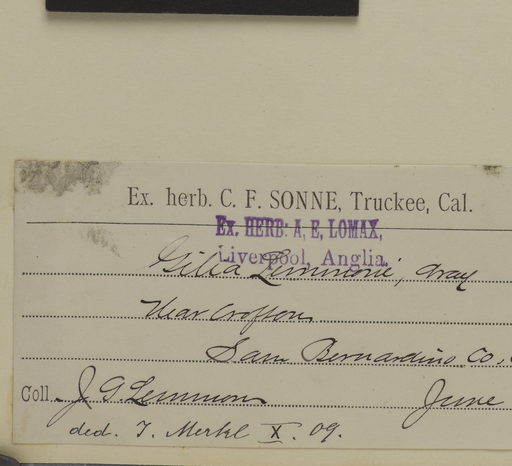 Ex. herb. C. F. SONNE, Truckee, Cal.
EX. HERB: A, E, LOMAX,
Liverpool, Anglia.
Gilia Lemmoni, Gray
Near Crafton
San Bernardino Co.
Coll. J G Lemmon June
ded. T. Merkl X. 09.